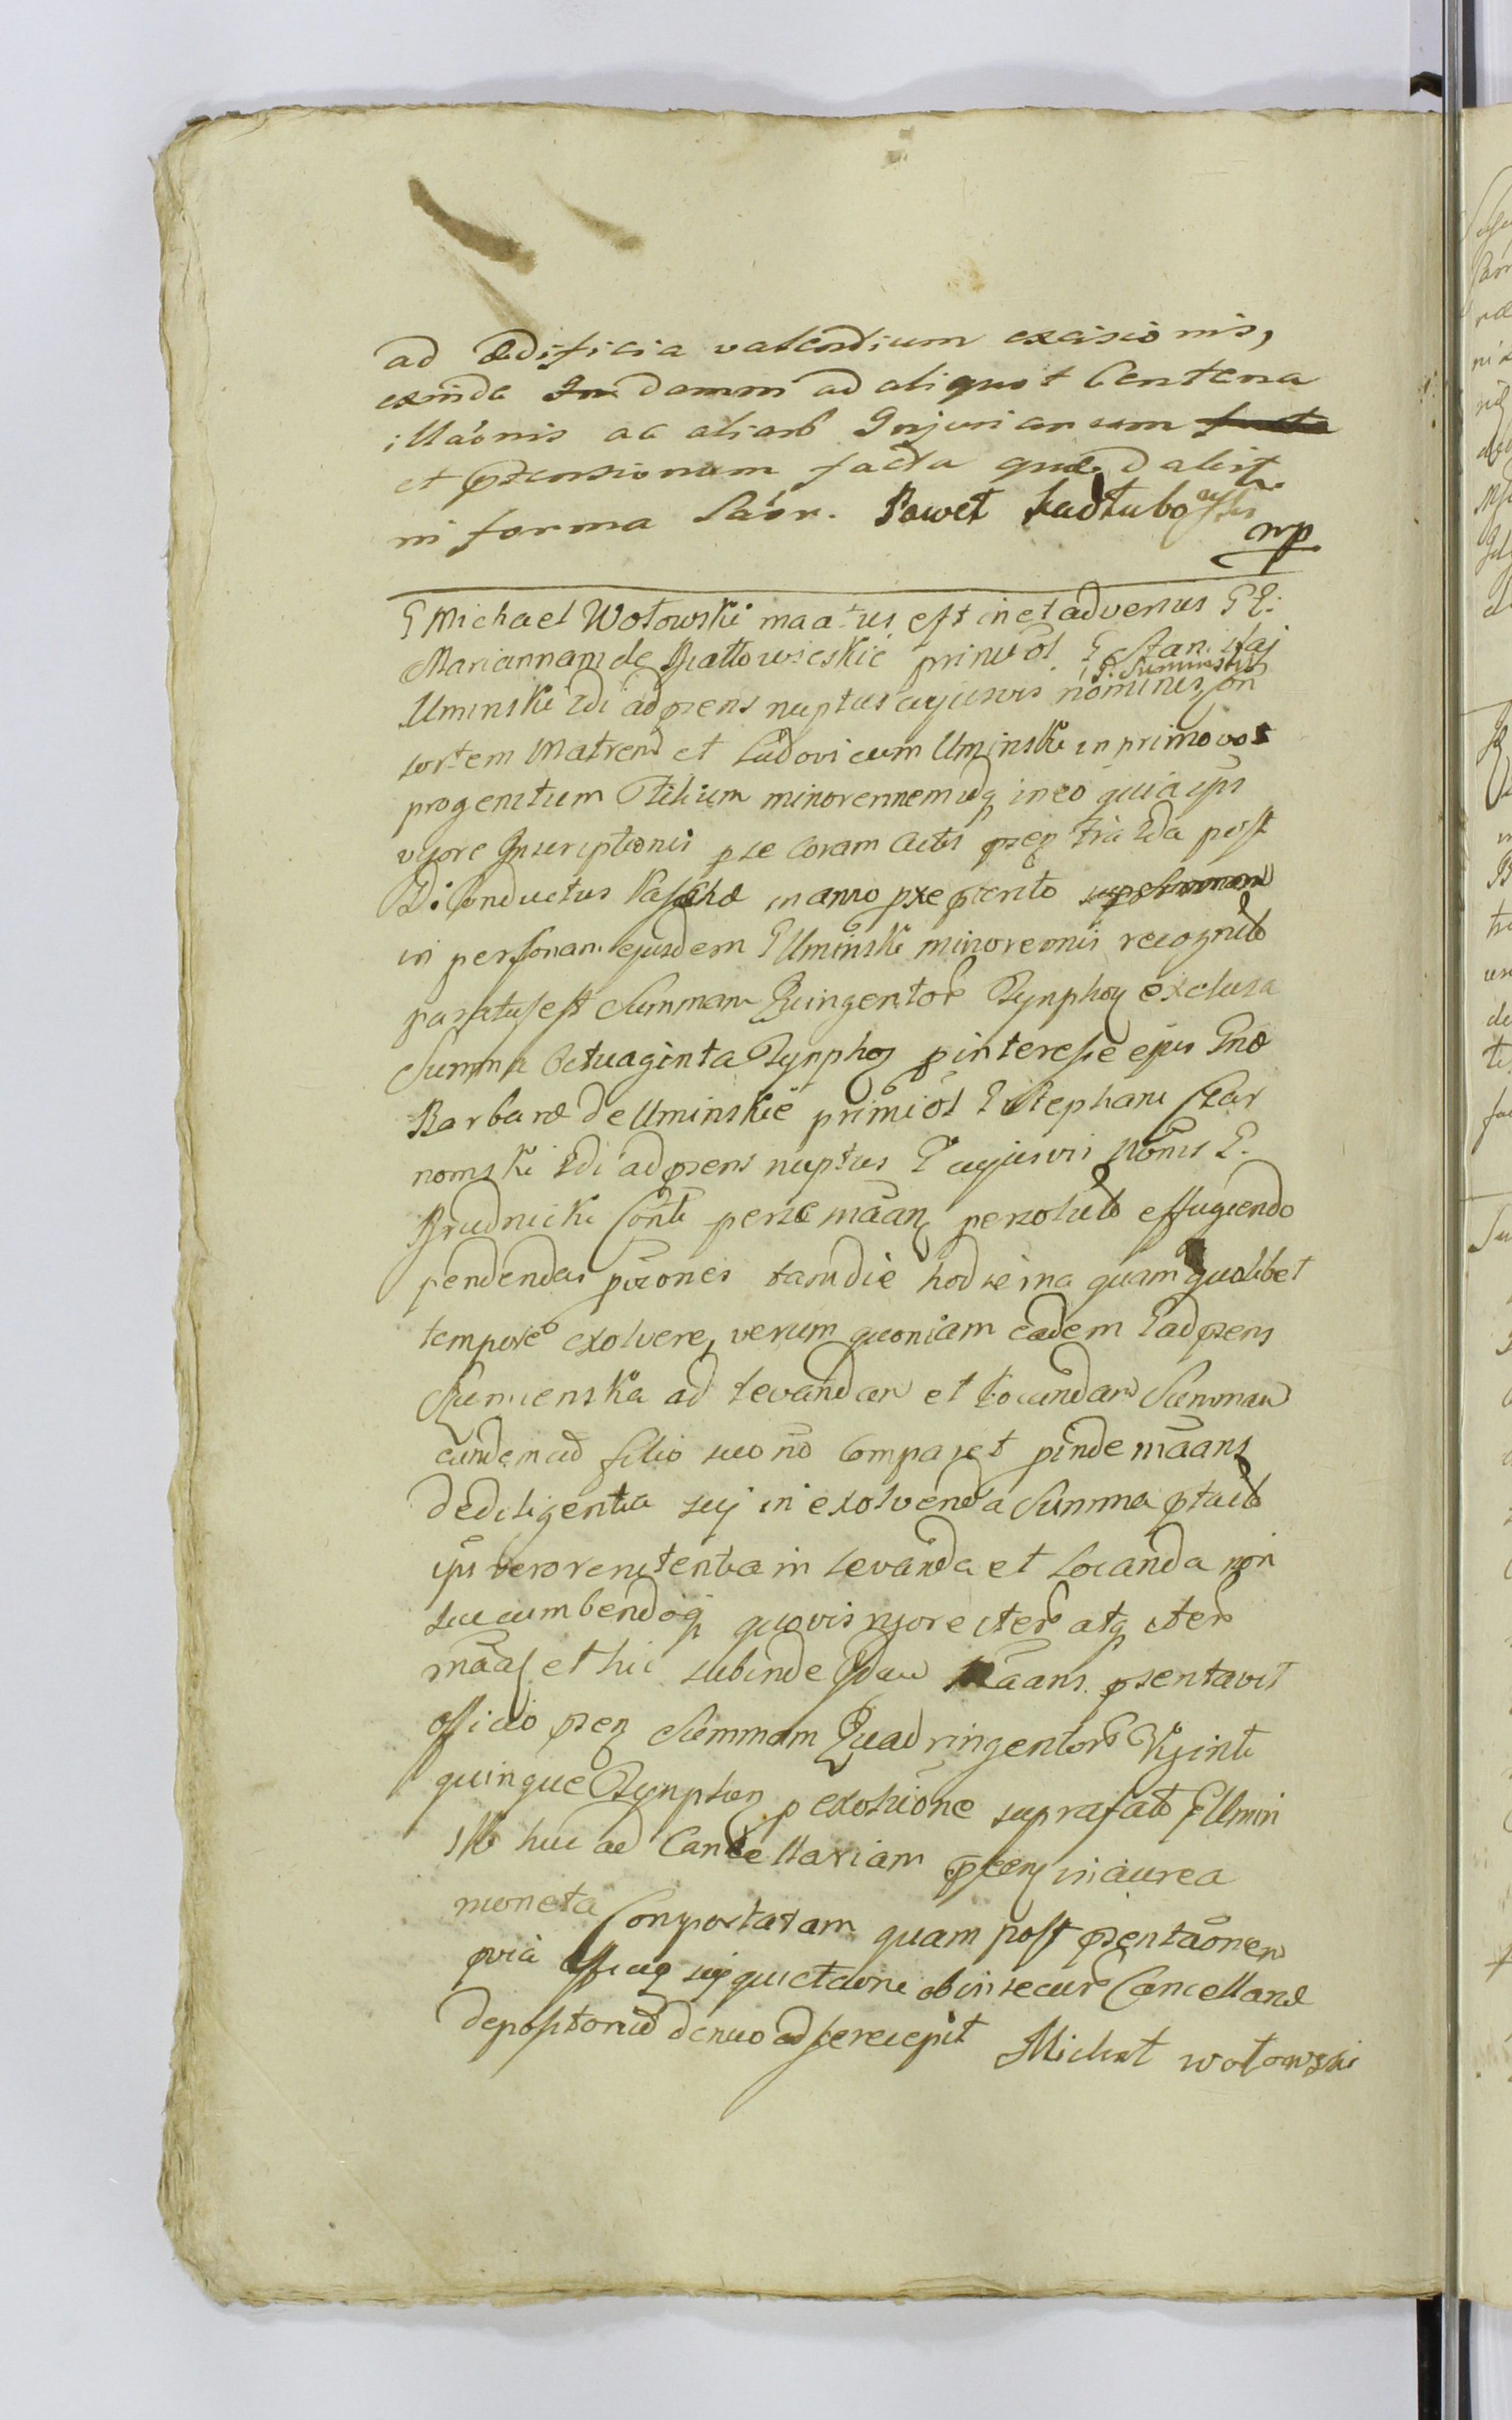 ad ædificia valentium excisionis,
exinde In damni ad aliquot Centena
illãonis ac aliarũ Injuriarum facta
et prætensionum facta quæ dabit
in forma Sãor. Paweł Kadłubowski
mp
G Michael Wołowski mãatus est in et adversus GG:
Mariannam de Białłowieskie primi võt G Stanislai
Uminski 2di ad præns nuptus cujusvis nominis G: Suminski con
sortem Matrem et Ludovicum Uminski in primo voto
progenitum Filium minorennemq in eo quia ipse
vigore Inscriptionis p se coram Actis præn fria 2da post
D: Conductus Paschæ in anno præsenti
in personam ejusdem G Uminski minorennis recognitæ
paratus est Summam Quingentor Tynphor exclusa
Summa Octuaginta Tynphor p interesse ejus Gnæ
Barbaræ de Uminskie primi võt G Stephani Czar
nomski 2di ad præns nuptus G cujusvis nõms G.
Brudnicki Conti per se mãan persoluta effugiendo
pendendas prones tam die hodierna quam quolibet
tempore exolvere, verum quoniam eadem G ad præns
Sumienska ad levandam et locandam Summam
eandem cum filio suo nõ comparet p inde mãans
de diligentia sui in exolvenda Summa ptacta
ips vero renitentia in levanda et locanda non
succumbendoq quovis vigore iter atq iter
mãas et hic subinde Idem mãans præsentavit
officio præn Summam Quadringentor Viginti
quinque Tynphor p exolutione suprafato G Umin
ski huc ad Cancellariam præn in aurea
moneta Comportatam quam post præsentãonem
quia ob insecur Cancellariæ
depositoriũ denuo ad se recepit Michał Wołowski